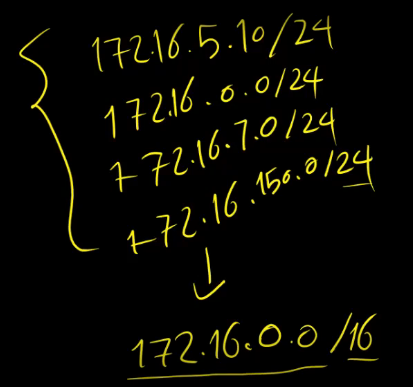 172.16.5.10/24
172.16.0.0/24
172.16.7.0/24
172.16.150.0/24
172.16.0.0/16